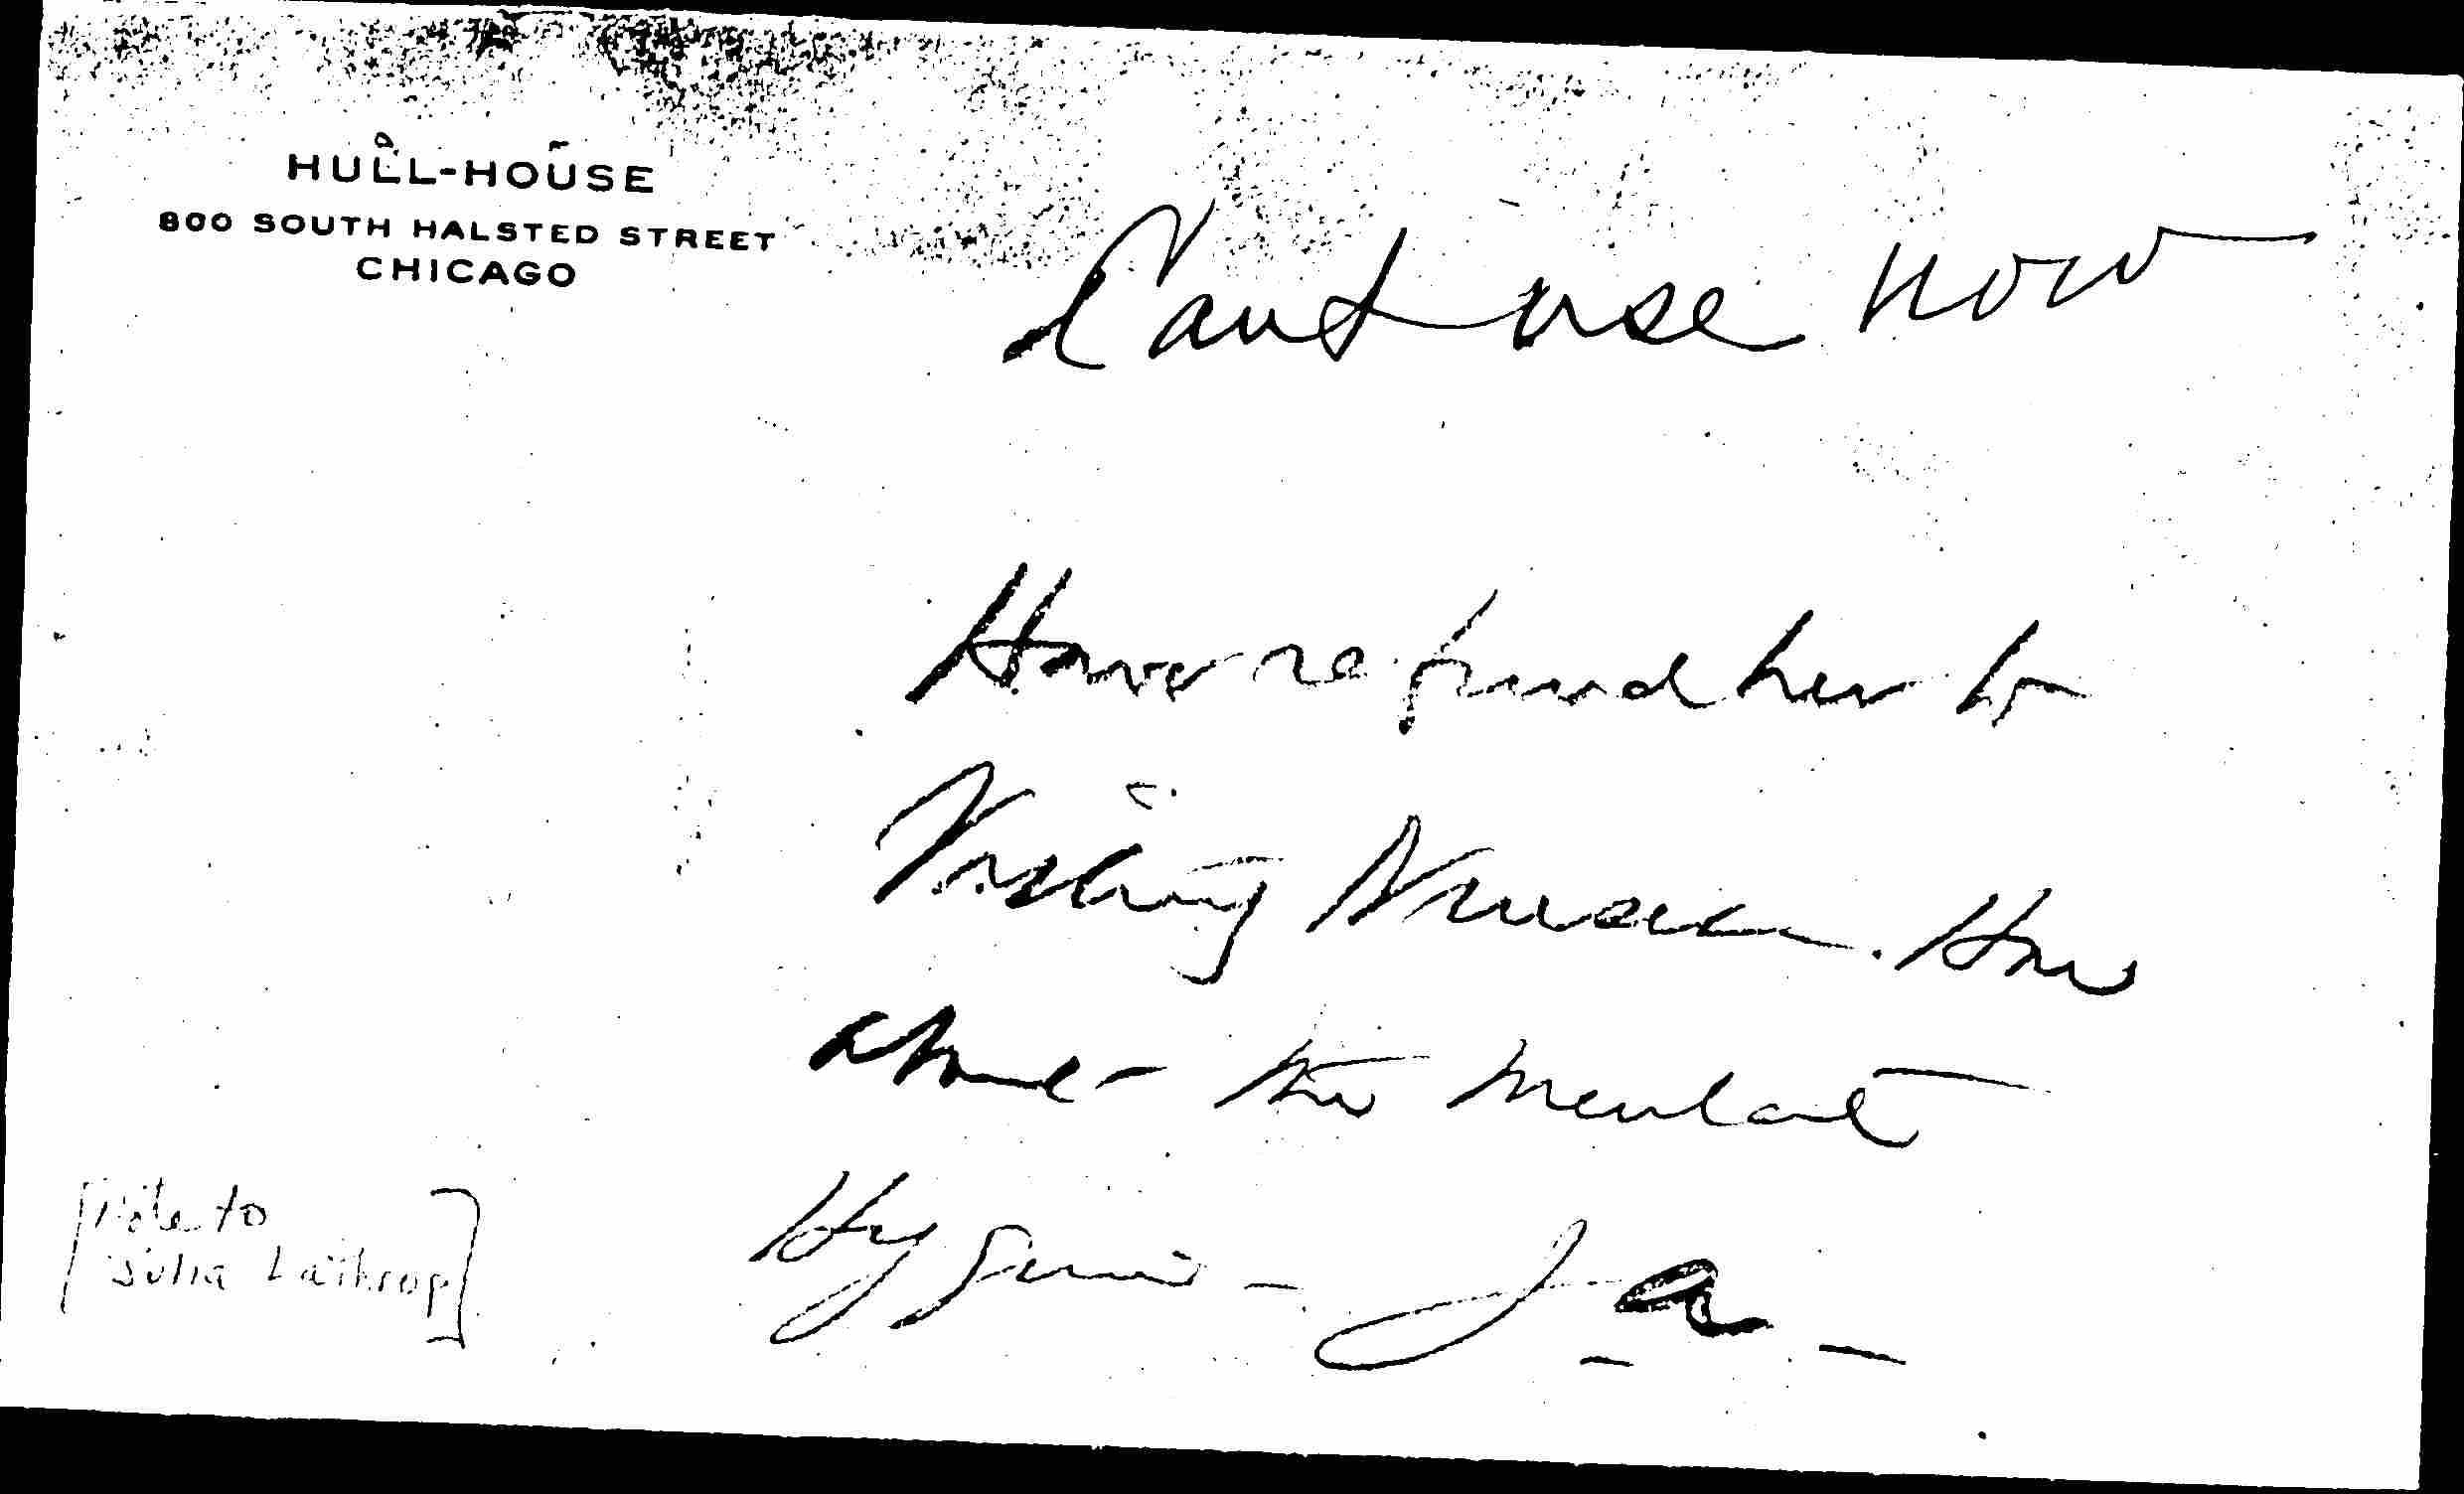 HULL-HOUSE
800 SOUTH HALSTED STREET
CHICAGO
Cant use now
Have referred her to
Visiting Nurses. How
about the Mental
Hygiene - J. A. -
[Note to
Julia Lathrop]